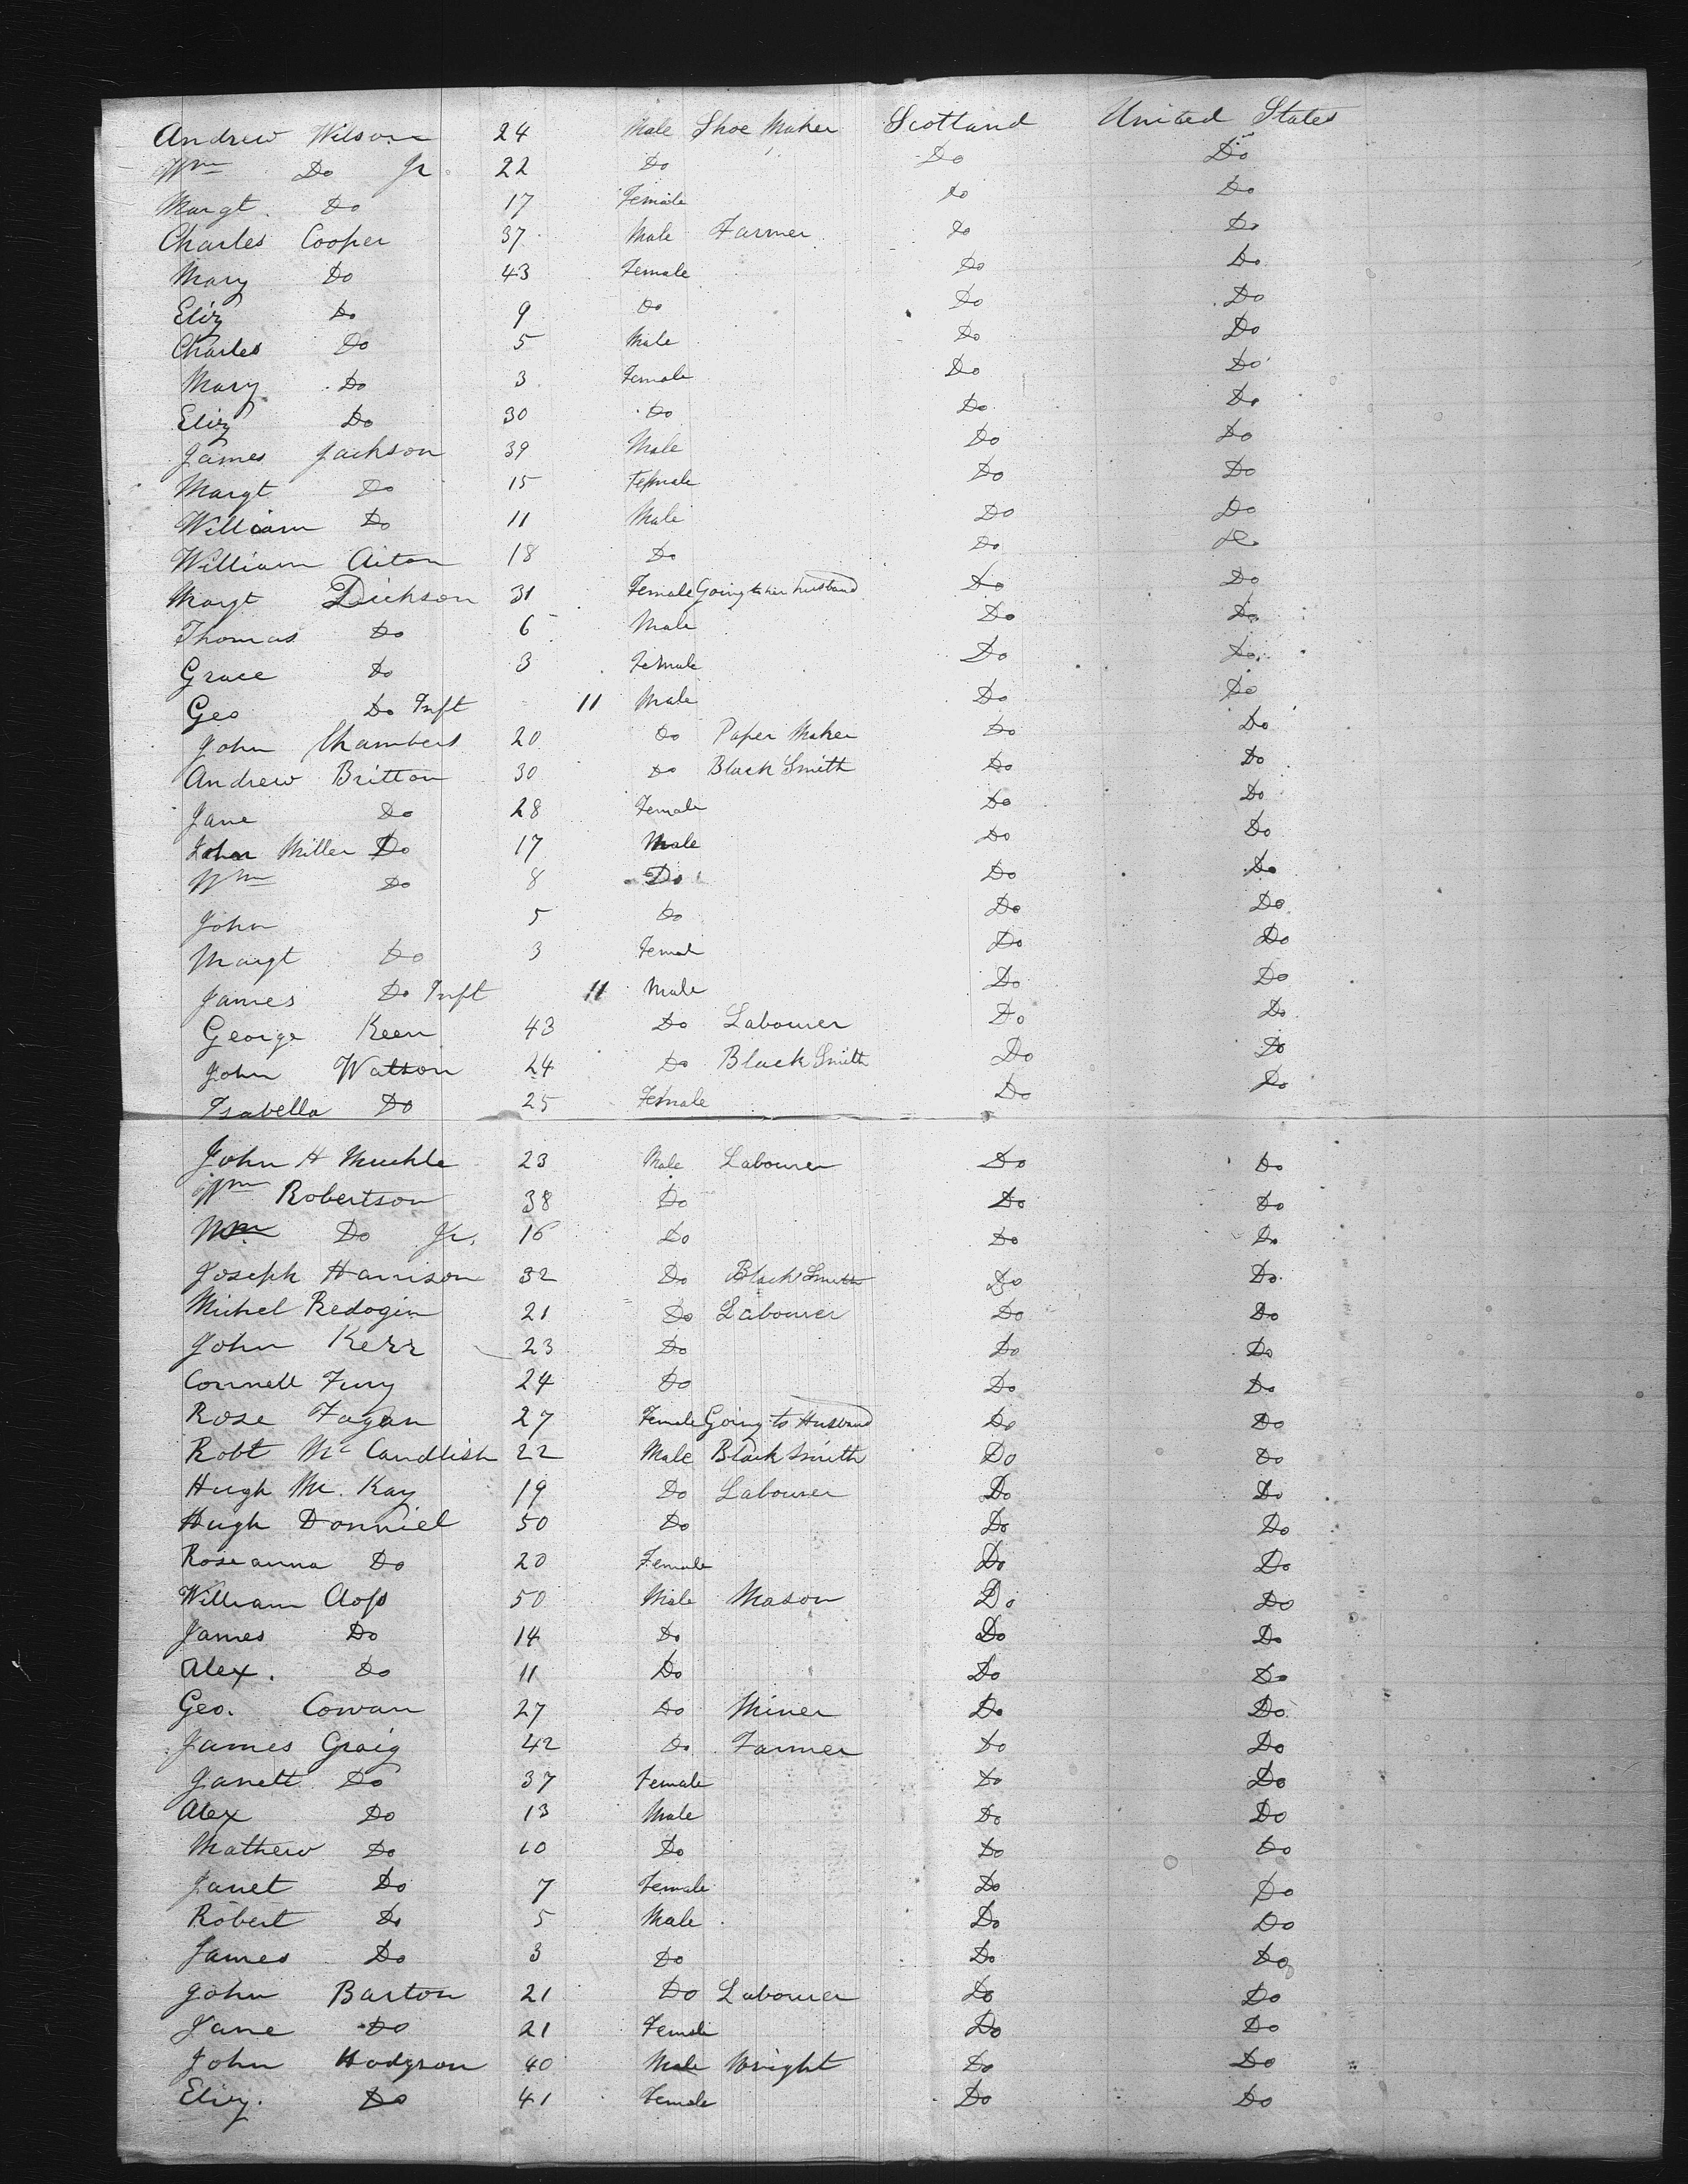 Andrew Wilson 24 Male Shoe Maker Scotland United States
Wm Do Jr. 22 Do Do Do
Margt. Do 17 Female Do Do
Charles Cooper 37 Male Farmer Do Do
Mary Do 43 Female Do Do
Eliz Do 9 Do Do Do
Charles Do 5 Male Do Do
Mary Do 3 Female Do Do
Eliz Do 30 Do Do Do
James Jackson 39 Male Do Do
Margt Do 15 Female Do Do
William Do 11 Male Do Do
William Aiton 18 Do Do Do
Margt Dickson 31 Female Going to her husband Do Do
Thomas Do 6 Male Do Do
Grace Do 3 Female Do Do
Geo Do Inft 11 Male Do Do
John Chambers 20 Do Paper Maker Do Do
Andrew Britton 30 Do Black Smith Do Do
Jane Do 28 Female Do Do
John Miller Do 17 Male Do Do
Wm Do 8 Do Do Do
John 5 Do Do Do
Margt Do 3 Female Do Do
James Do Inft 11 Male Do Do
George Keen 43 Do Labourer Do Do
John Watson 24 Do Black Smith Do Do
Isabella Do 25 Female Do Do
John H Muckle 23 Male Labourer Do Do
Wm Robertson 38 Do Do Do
Wm Do Jr. 16 Do Do Do
Joseph Harrison 32 Do Black Smith Do Do
Michel Redogin 21 Do Labourer Do Do
John Kerr 23 Do Do Do
Connell Fury 24 Do Do Do
Rose Fagan 27 Female Going to Husband Do Do
Robt Mc Candlish 22 Male Black Smith Do Do
Hugh Mc. Kay 19 Do Labourer Do Do
Hugh Donniel 50 Do Do Do
Roseanna Do 20 Female Do Do
William 50 Male Mason Do Do
James Do 14 Do Do Do
Alex. Do 11 Do Do Do
Geo. Cowan 27 Do Miner Do Do
James Graig 42 Do Farmer Do Do
Janett Do 37 Female Do Do
Alex Do 13 Male Do Do
Mathew Do 10 Do Do Do
Janet Do 7 Female Do Do
Robert Do 5 Male Do Do
James Do 3 Do Do Do
John Barton 21 Do Labourer Do Do
Jane Do 21 Female Do Do
John Hodgson 40 Male Wright Do Do
Eliz. Do 41 Female Do Do